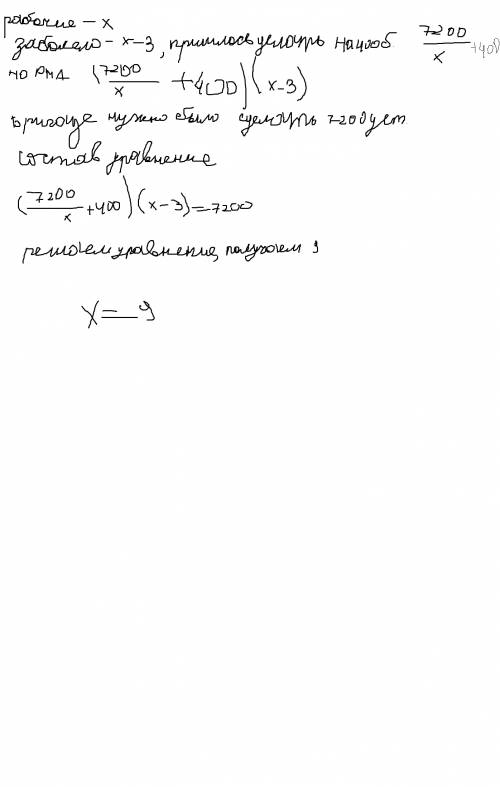 рабочие - x
заболело - x-3, пришлось сделать на 400б. 7200/x +400
норма (7200/x + 400)(x-3)
бригаде нужно было сделать 7200 дет
состав уравнение
(7200/x +400)(x-3)=7200
решаем уравнение, получаем 9
X=9